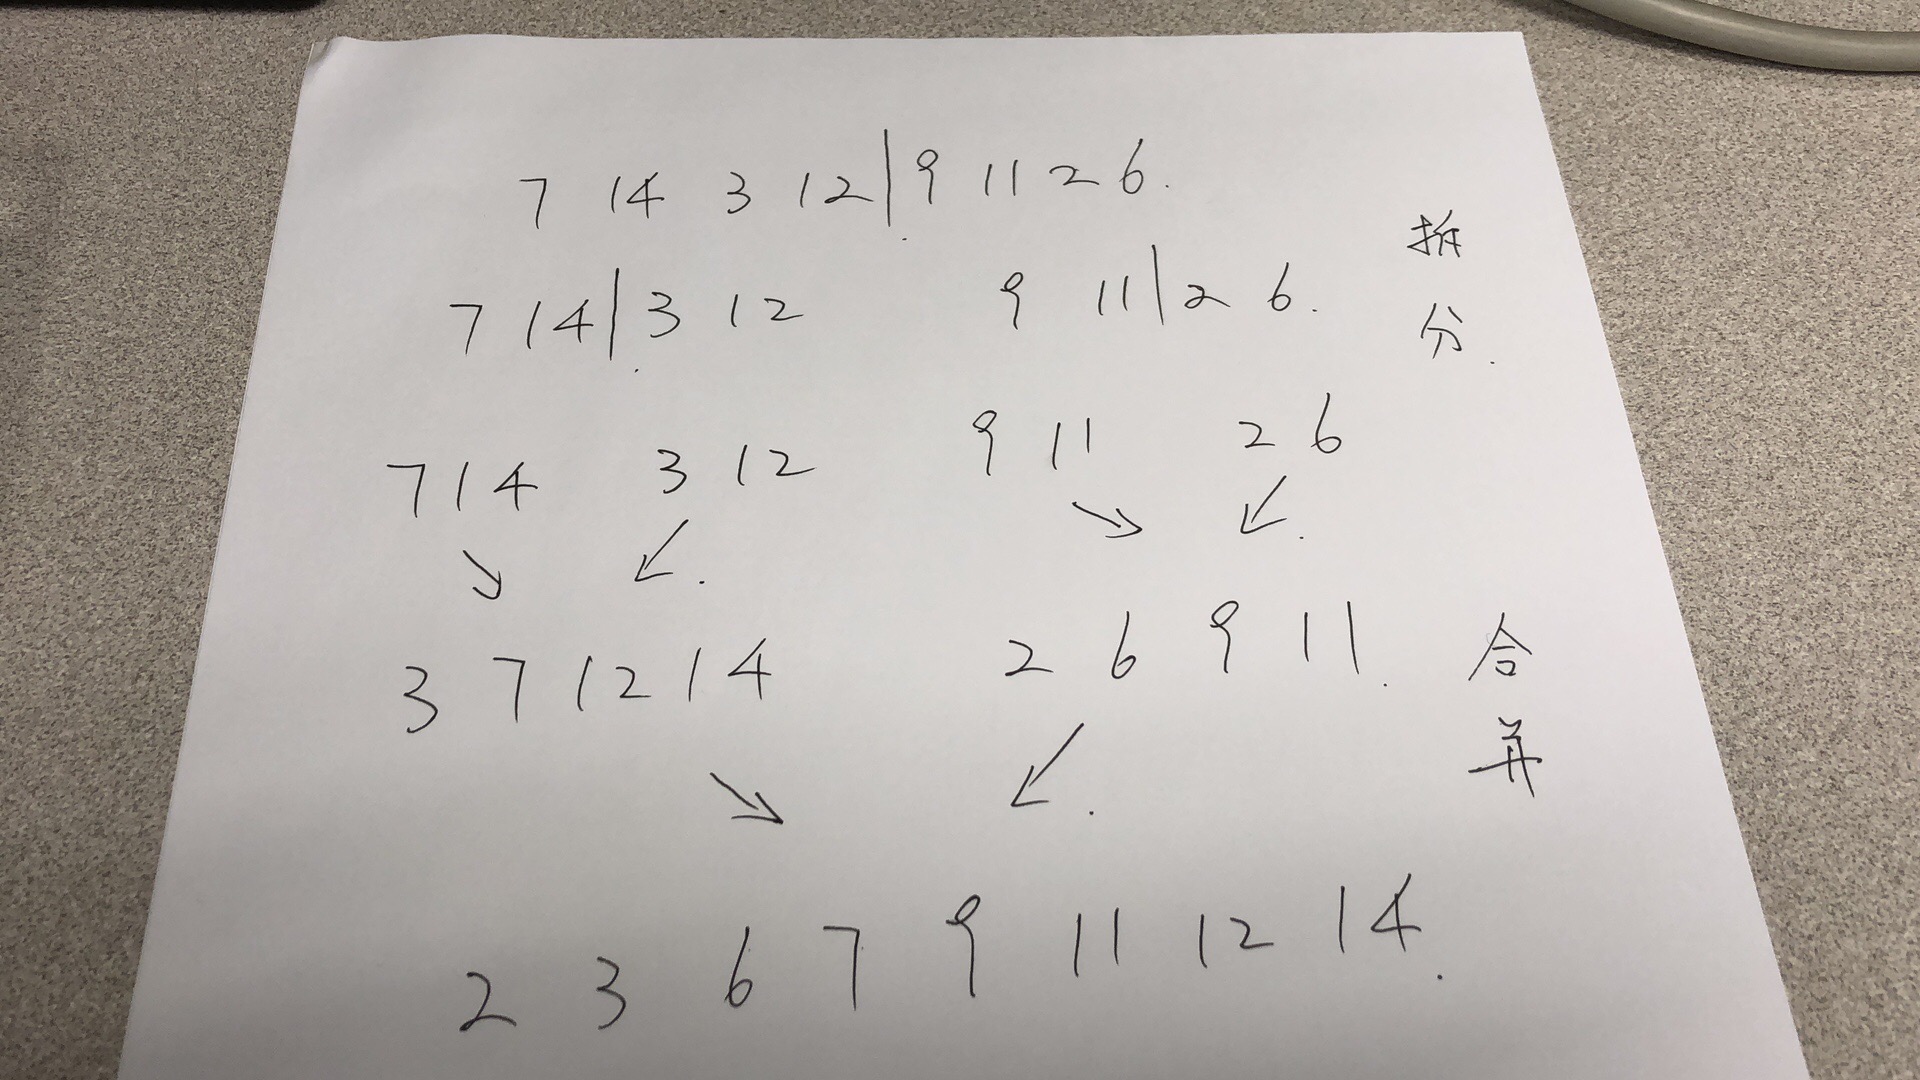 7 14 3 12 | 9 11 2 6.
拆
分.
7 14 | 3 12 9 11 | 2 6.
7 14 3 12 9 11 2 6
3 7 12 14 2 6 9 11.
合
并
2 3 6 7 9 11 12 14.